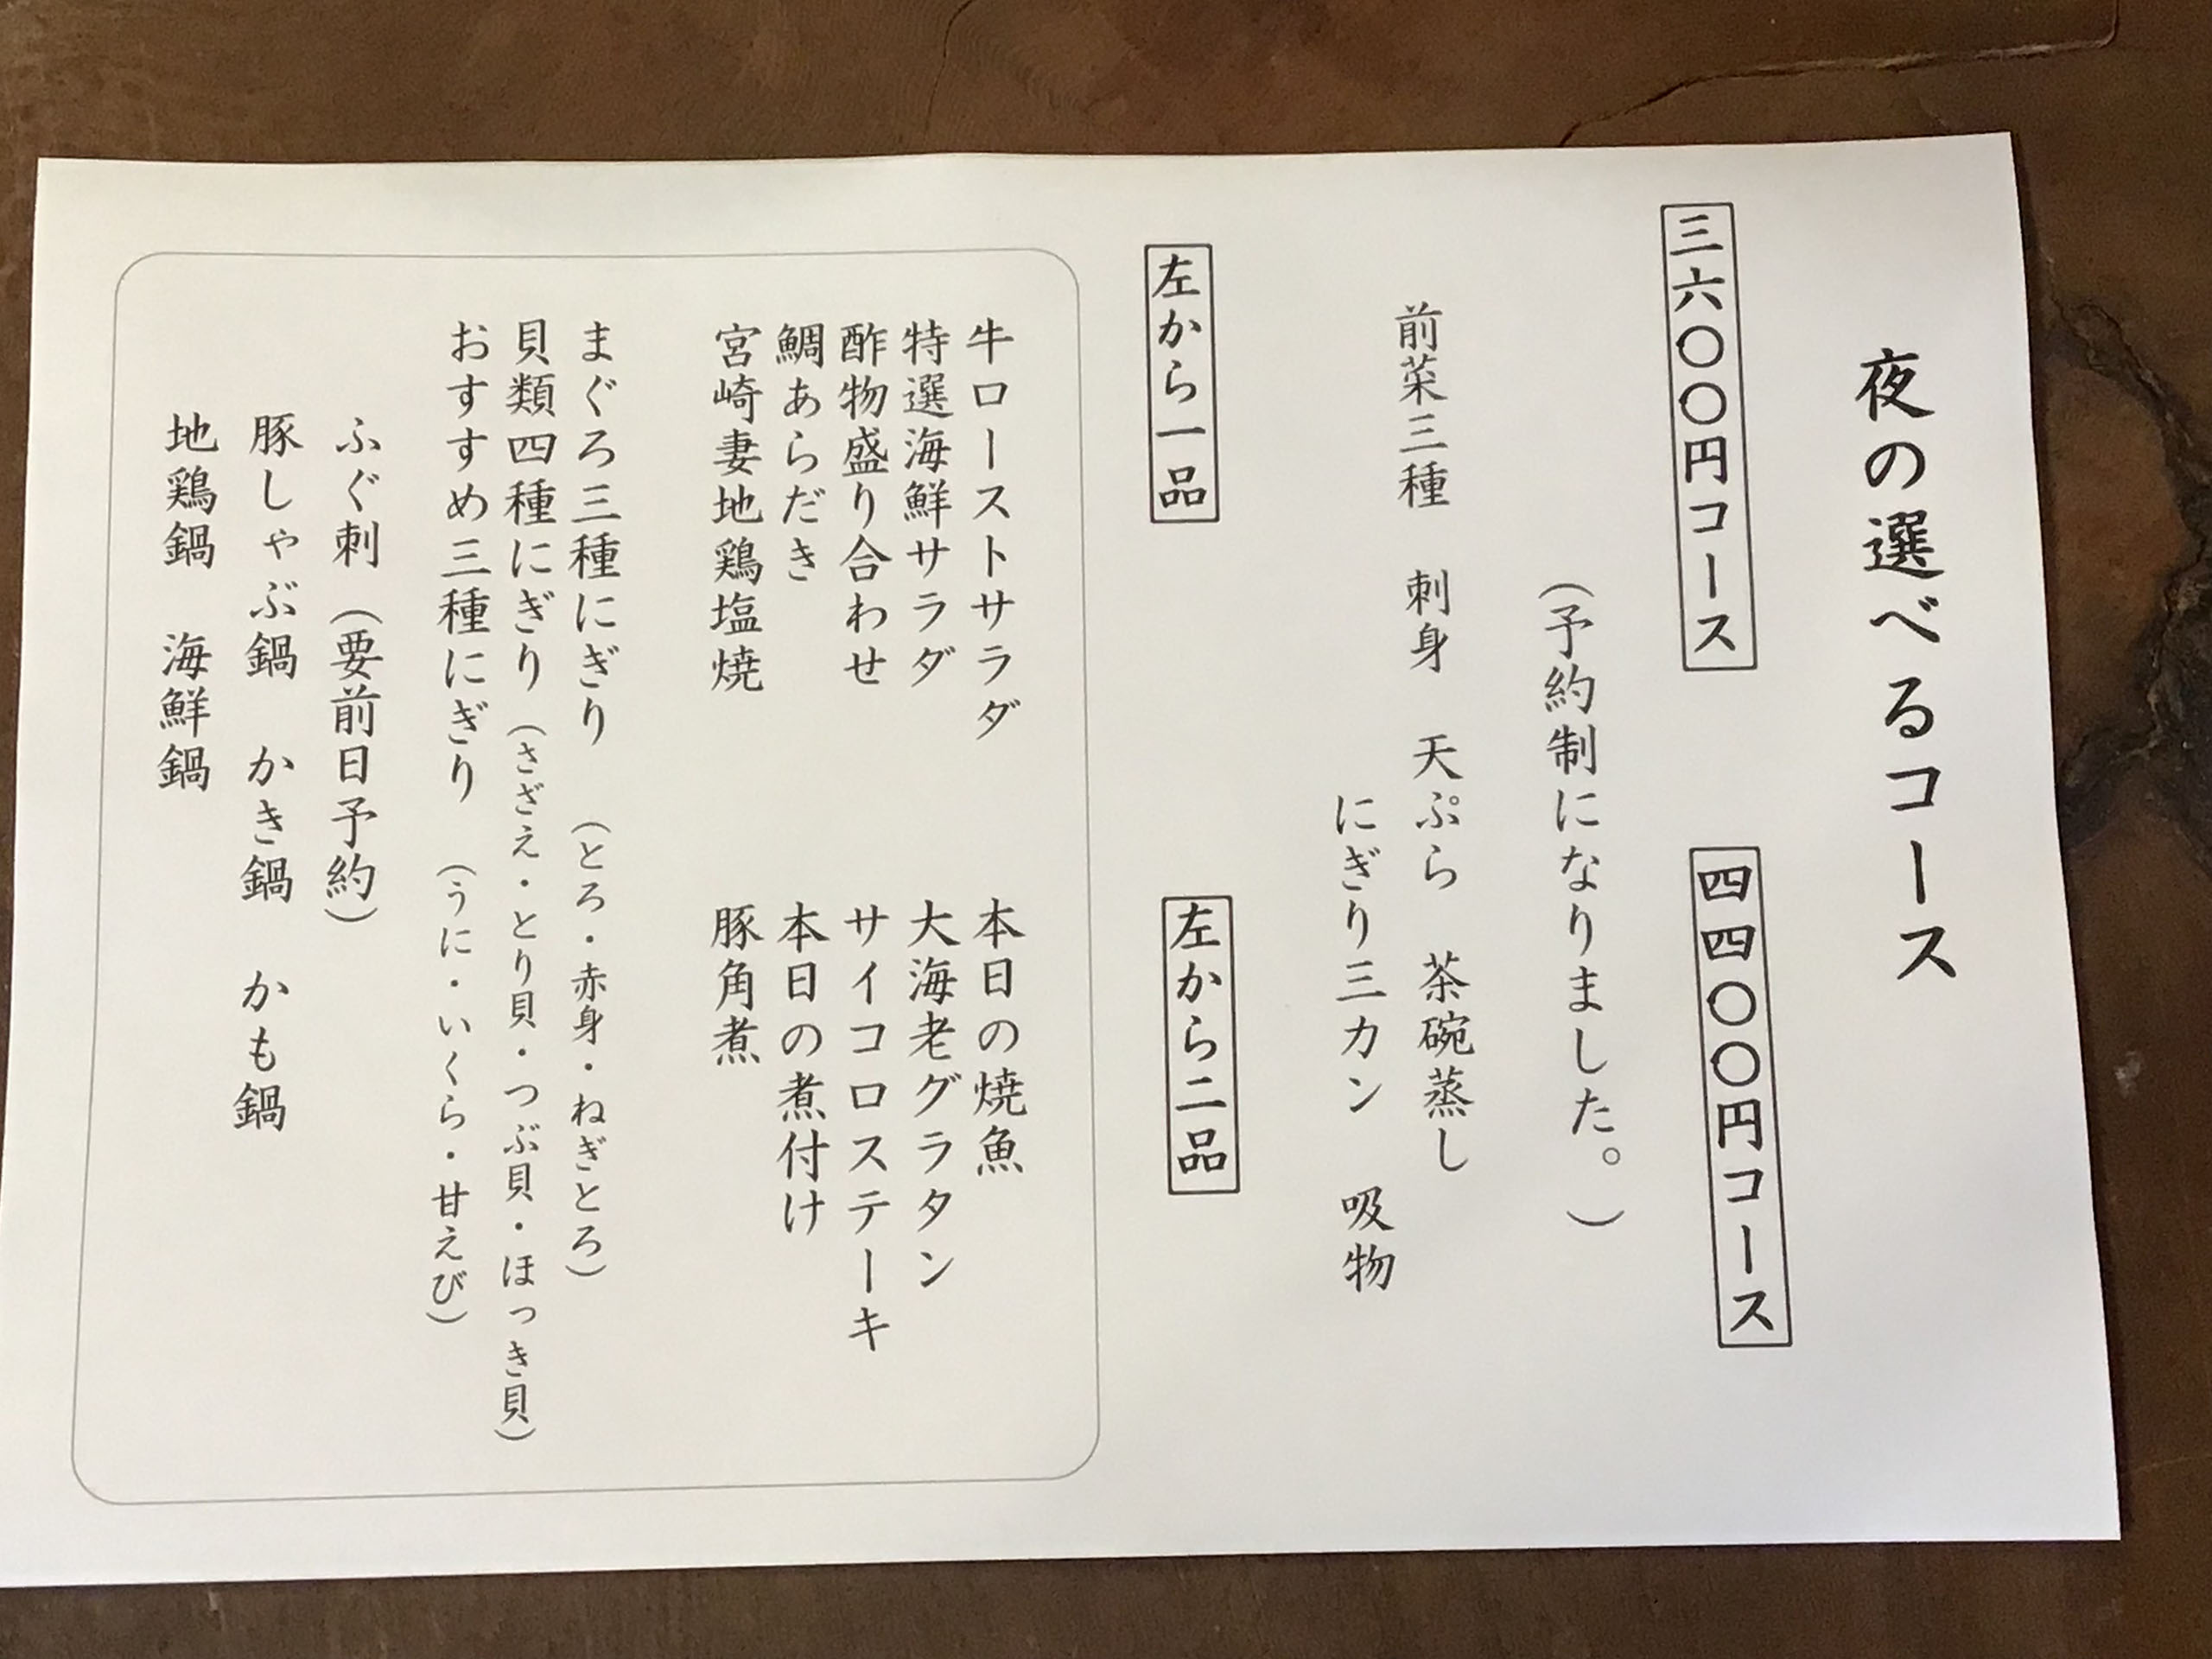 夜の選べるコース
三六〇〇円コース
四四〇〇円コース
(予約制になりました。)
前菜三種 刺身 天ぷら 茶碗蒸し
にぎり三カン 吸物
左から一品
左から二品
牛ローストサラダ
特選海鮮サラダ
酢物盛り合わせ
鯛あらだき
宮崎妻地鶏塩焼
本日の焼魚
大海老グラタン
サイコロステーキ
本日の煮付け
豚角煮
まぐろ三種にぎり (とろ・赤身・ねぎとろ)
貝類四種にぎり (さざえ・とり貝・つぶ貝・ほっき貝)
おすすめ三種にぎり (うに・いくら・甘えび)
ふぐ刺 (要前日予約)
豚しゃぶ鍋 かき鍋 かも鍋
地鶏鍋 海鮮鍋